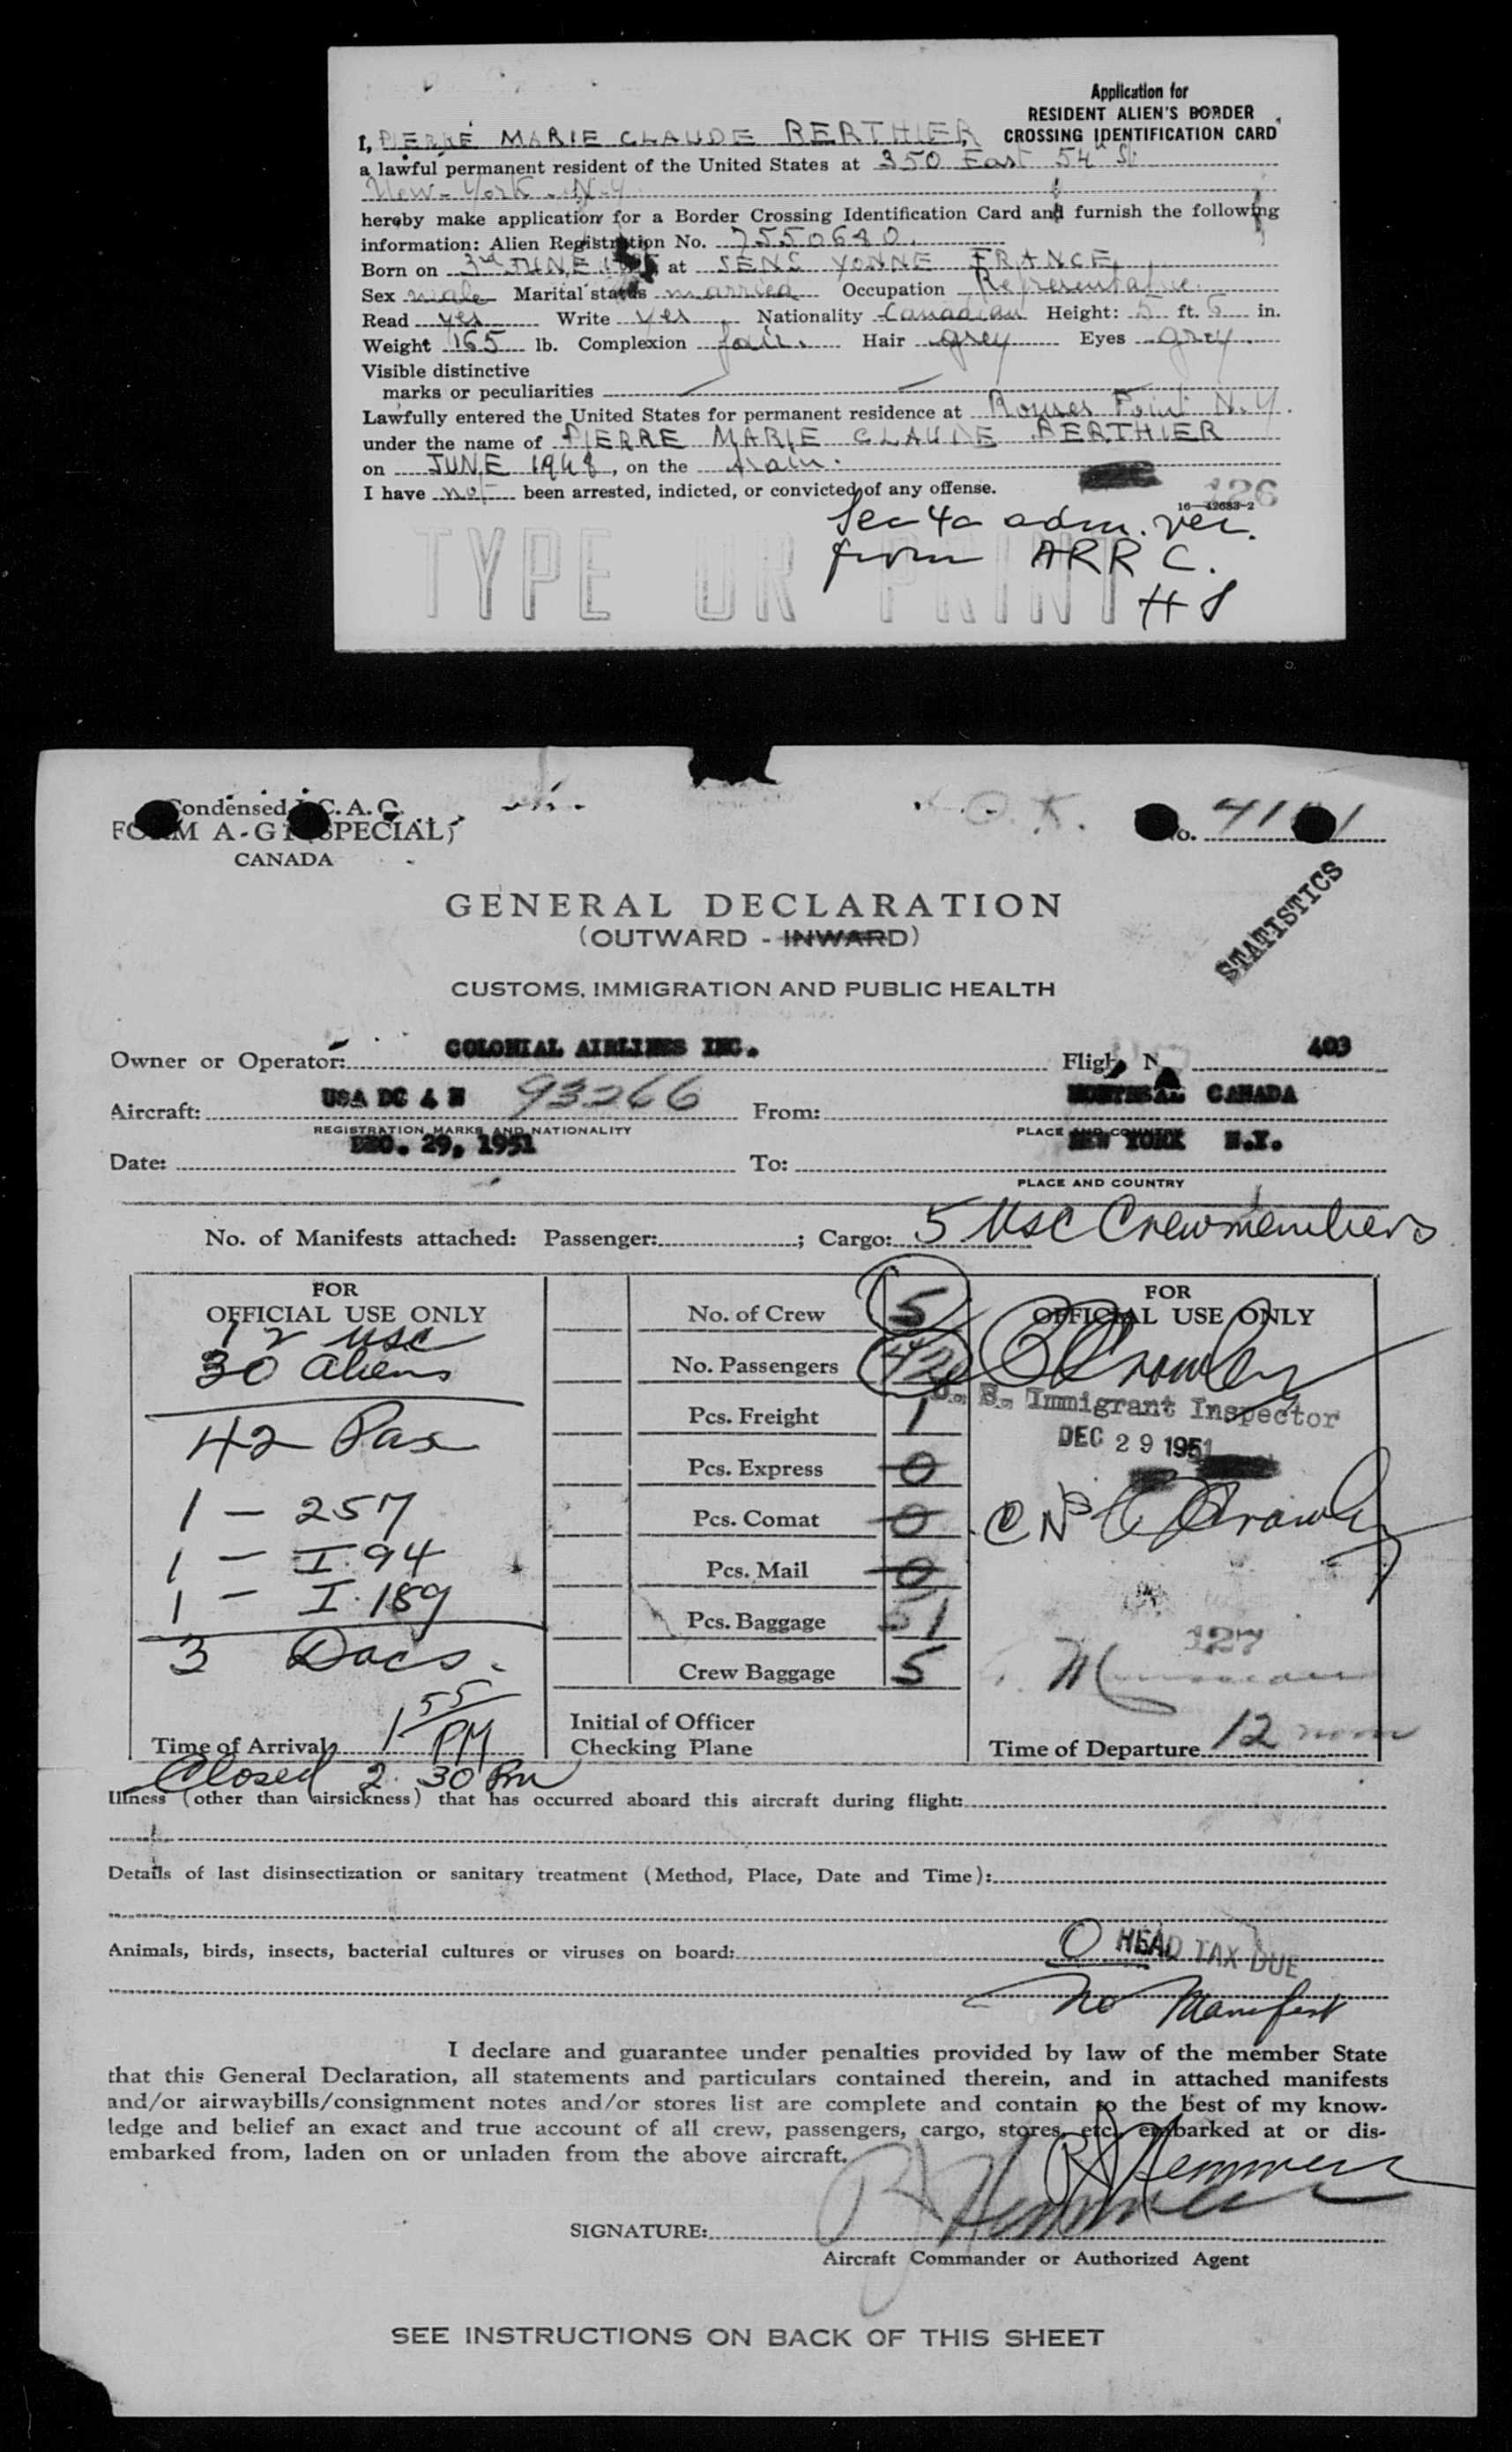 Application for
RESIDENT ALIEN'S BORDER
CROSSING IDENTIFICATION CARD
I, PIERRE MARIE CLAUDE BERTHIER,
a lawful permanent resident of the United States at 350 East 54th St
New-York-N.Y.
hereby make application for a Border Crossing Identification Card and furnish the following
information: Alien Registration No. 7550640.
Born on 3rd JUNE at SENS YONNE FRANCE
Sex male Marital status married Occupation Representative.
Read yes Write yes Nationality Canadian Height: 5 ft. 6 in.
Weight 165 lb. Complexion fair. Hair grey Eyes grey.
Visible distinctive
marks or peculiarities
Lawfully entered the United States for permanent residence at Rouses Point N.Y.
under the name of PIERRE MARIE CLAUDE BERTHIER
on JUNE 1948, on the train.
I have not been arrested, indicted, or convicted of any offense.
126
16—42683-2
Sec 4a adm. ver.
from ARR C.
HS
TYPE OR PRINT
Condensed I.C.A.O.
FORM A-G1 (SPECIAL)
CANADA
O.K.
No. 41 1
STATISTICS
GENERAL DECLARATION
(OUTWARD - INWARD)
CUSTOMS, IMMIGRATION AND PUBLIC HEALTH
Owner or Operator: COLONIAL AIRLINES INC. Flight No. 403
Aircraft: USA DC 4 N 93266 From: MONTREAL CANADA
REGISTRATION MARKS AND NATIONALITY PLACE AND COUNTRY
Date: DEC. 29, 1951 To: NEW YORK N.Y.
PLACE AND COUNTRY
No. of Manifests attached: Passenger: ; Cargo: 5 USC Crewmembers
FOR
OFFICIAL USE ONLY
12 USC
30 Aliens
42 Pax
1 — 257
1 — I.94
1 — I.189
3 Docs.
Time of Arrival 1 55 PM
Closed 2.30 Pm
No. of Crew 5
No. Passengers 42
Pcs. Freight 1
Pcs. Express 0
Pcs. Comat 0
Pcs. Mail 0
Pcs. Baggage 51
Crew Baggage 5
Initial of Officer
Checking Plane
FOR
OFFICIAL USE ONLY
Crowley
U. S. Immigrant Inspector
DEC 29 1951
Crowley
127
Time of Departure 12 noon
Illness (other than airsickness) that has occurred aboard this aircraft during flight:
Details of last disinsectization or sanitary treatment (Method, Place, Date and Time):
Animals, birds, insects, bacterial cultures or viruses on board:
0 HEAD TAX DUE
No Manifest
I declare and guarantee under penalties provided by law of the member State
that this General Declaration, all statements and particulars contained therein, and in attached manifests
and/or airwaybills/consignment notes and/or stores list are complete and contain to the best of my know-
ledge and belief an exact and true account of all crew, passengers, cargo, stores, etc. embarked at or dis-
embarked from, laden on or unladen from the above aircraft.
SIGNATURE:
Aircraft Commander or Authorized Agent
SEE INSTRUCTIONS ON BACK OF THIS SHEET